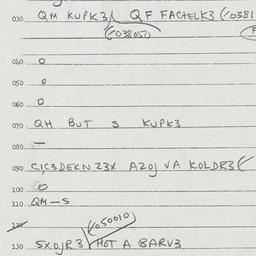 030 QM KUPK3/ QF FACHELK3 (/0381
(/038050)
040 0
050 0
060 0
070 QH BUT S KUPK3
080 —
090 C,C3DEKNZ3X AZOJ VA KOLDR3(
100 0
110 QM-S
(/050010)
120
130 SXOJR3/ HOT A BARV3